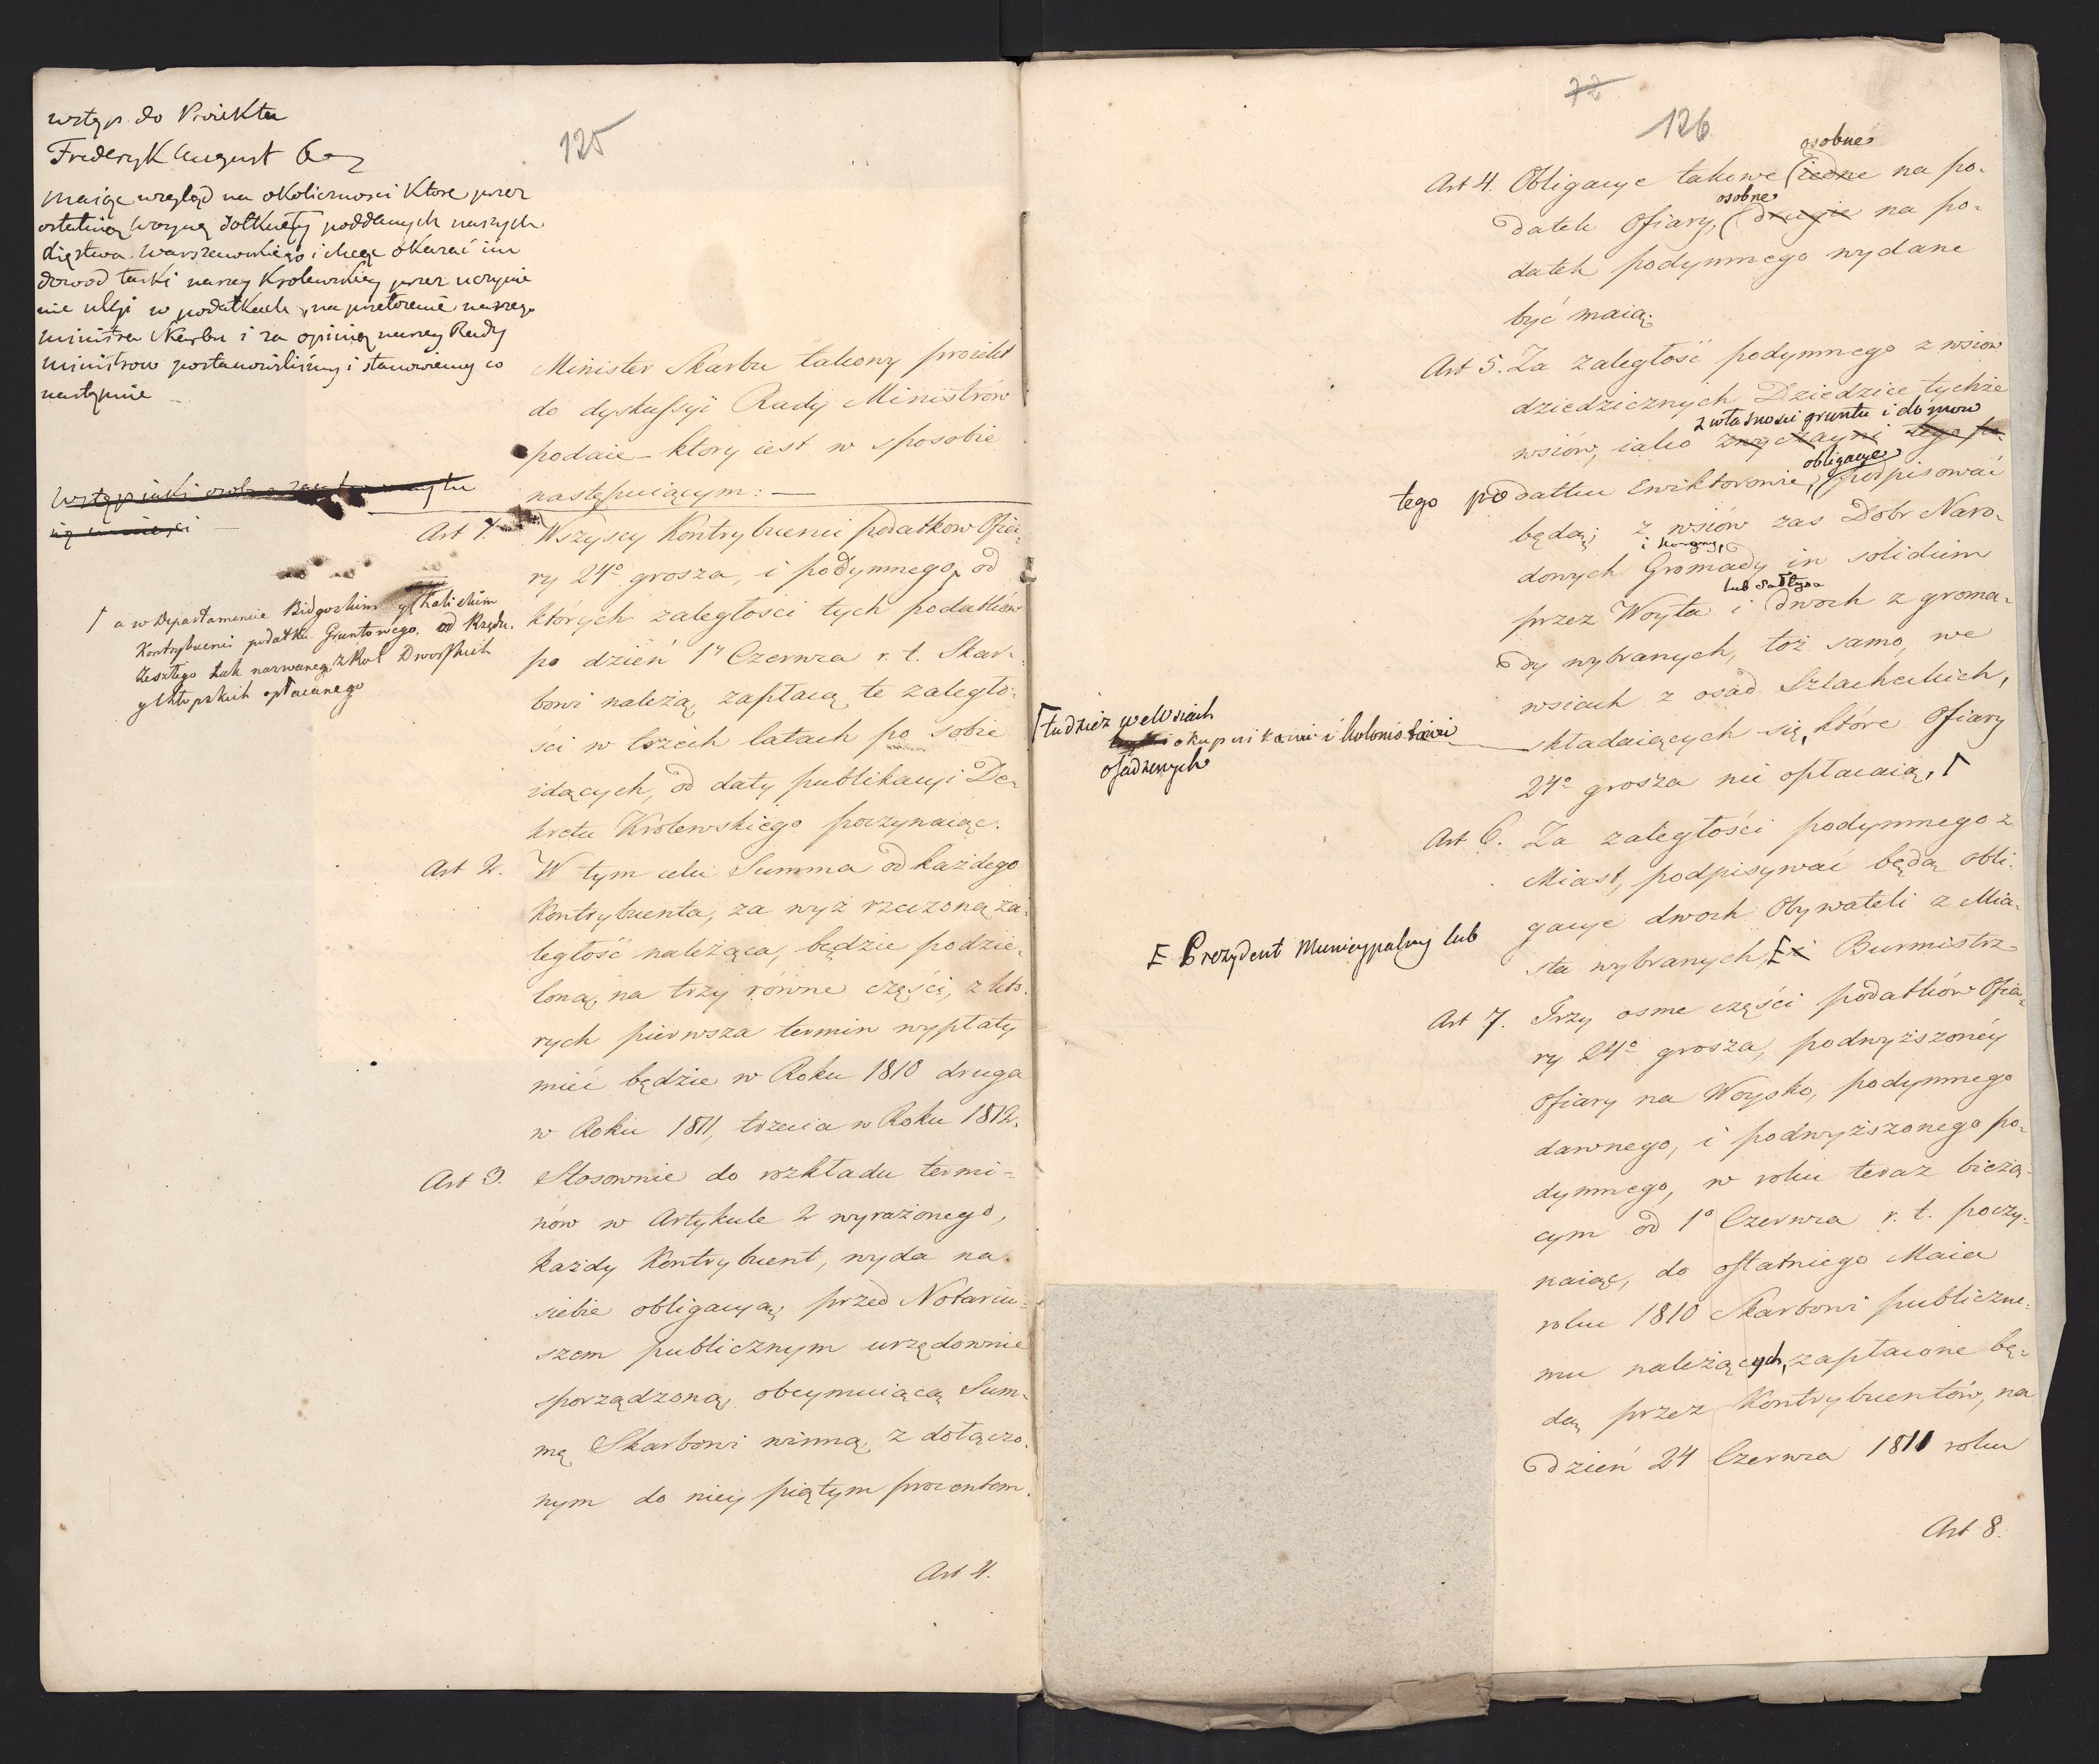 125
wstęp do Proiektu
Fryderyk August &c
maiąc wzgląd na okoliczności które przez
ostatnią woynę dotknęły poddanych naszych
Xięstwa Warszawskiego i chcąc okazać im
dowód łaski naszey Krolewskiey przez uczynie
nie ulgi w podatkach, na przełożenie naszego
Ministra Skarbu i za opinią naszey Rady
Ministrow postanowiliśmy i stanowiemy co
następuie
Wstęp iaki
Minister Skarbu takowy proiekt
do dyskussyi Rady Ministrów
podaie – ktory iest w sposobie
następuiącym: —
Art 1. Wszyscy Kontrybuenci podatkow Ofia-
ry 24º grosza, i podymnego, od
których zaległości tych podatków
po dzień 1º Czerwca r. t. Skar-
bowi należą, zapłacą te zaległo-
ści w trzech latach po sobie
idących, od daty publikacyi De-
kretu Krolewskiego poczynaiąc.
a w Departamencie Bidgoskim y Kaliskim
Kontrybuenci podatku Gruntowego od Rządu
Zeszłego tak nazwanego z Rol Dworskich
y Chłopskich opłacanego
Art 2. W tym celu Summa od każdego
Kontrybuenta, za wyż rzeczoną za-
ległość należąca, będzie podzie-
loną, na trzy równe części, z któ-
rych pierwsza termin wypłaty
mieć będzie w Roku 1810 druga
w Roku 1811, trzecia w Roku 1812.
Art 3. Stosownie do rozkładu termi-
nów w Artykule 2 wyrażonego,
każdy Kontrybuent, wyda na
siebie obligacyą, przed Notariu-
szem publicznym urzędownie
sporządzoną, obeymuiącą Sum-
mę Skarbowi winną, z dołączo-
nym do niey piątym procentem.
Art 4.
72
126
osobne
Art 4. Obligacye takowe (iedne na po-
osobne
datek Ofiary, (drugie na po-
datek podymnego wydane
być maią.
Art 5. Za zaległość podymnego z wsiow
dziedzicznych Dziedzice tychże
z własności gruntu i domow
wsiów, iako zwyczayni tego po-
obligacye
tego podatku Ewiktorowie, (podpisować
będą; z wsiów zas Dobr Naro-
i koronny,
donych Gromady in solidum
lub Sołtysa
przez Woyta i dwoch z groma-
dy wybranych, toż samo, we
wsiach z osad Szlacheckich,
składaiących się, które Ofiary
24º grosza nie opłacaią,
tudzież we Wsiach
okupnikami i Kolonistami
osadzonych
Art 6. Za zaległości podymnego z
Miast, podpisywać będą obli-
gacye dwoch Obywateli z Mia-
sta wybranych, i Burmistrz
Prezydent Municypalny lub
Art 7. Trzy osme części podatków Ofia-
ry 24º grosza, podwyższoney
Ofiary na Woysko, podymnego
dawnego, i podwyższonego po-
dymnego, w roku teraz bieżą-
cym od 1º Czerwca r. t. poczy-
naiąc, do ostatniego Maia
roku 1810 Skarbowi publiczne-
mu należących, zapłacone bę-
dą przez Kontrybuentów, na
dzień 24 Czerwca 1811 roku
Art 8.